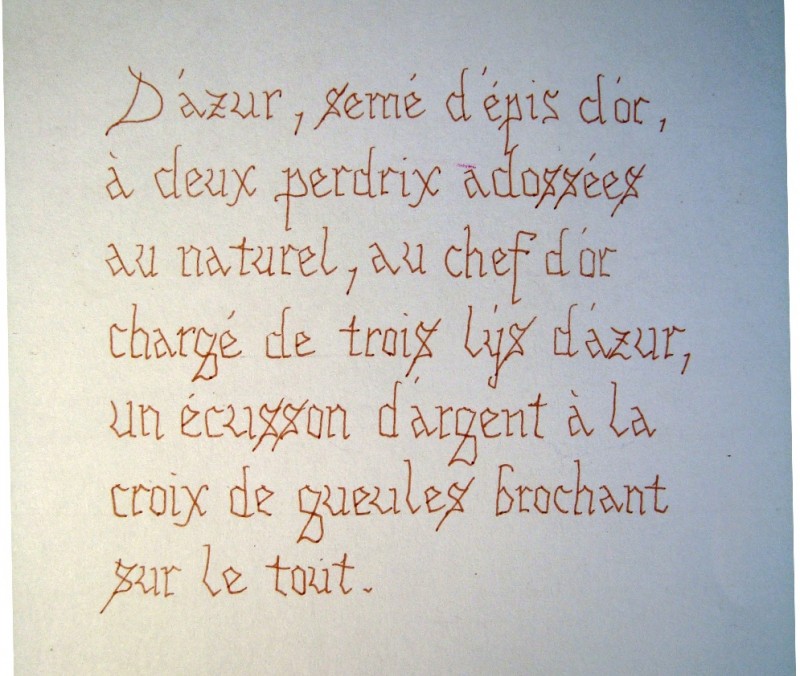 D'azur, semé d'épis d'or,
à deux perdrix adossées
au naturel, au chef d'or
chargé de trois lys d'azur,
un écusson d'argent à la
croix de gueules brochant
sur le tout.